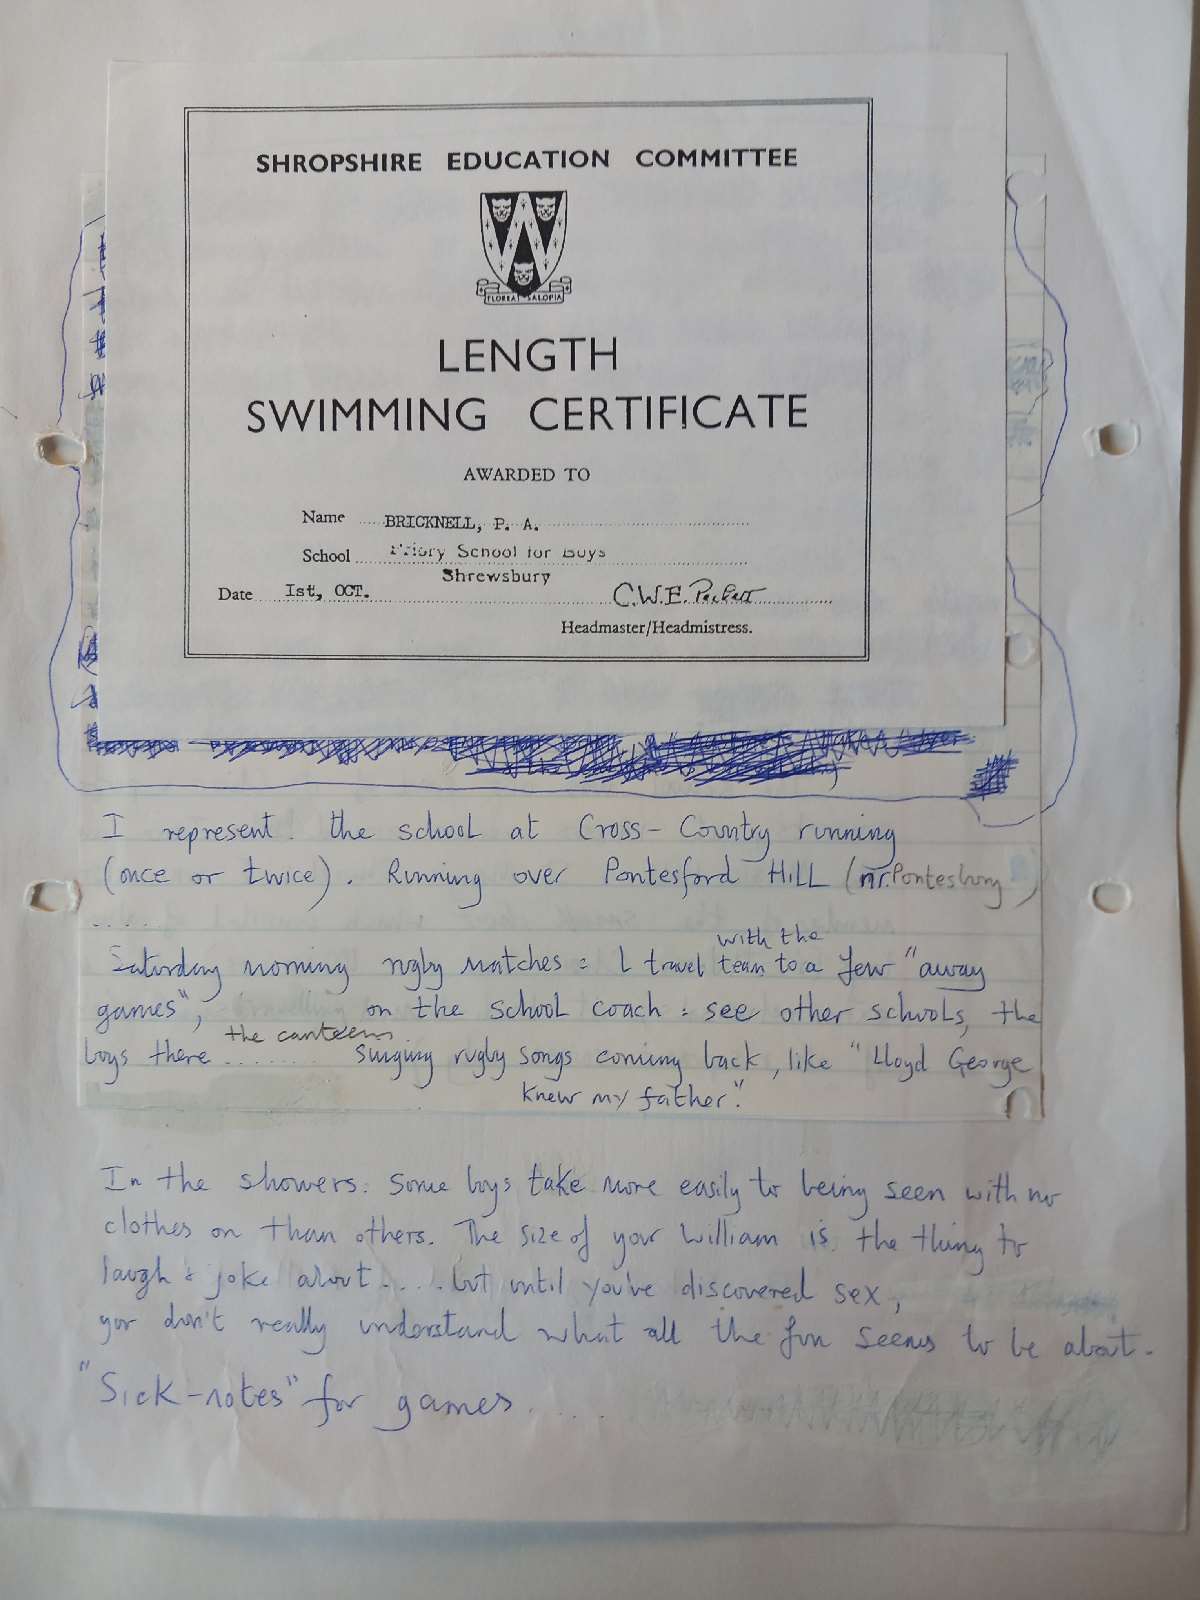 SHROPSHIRE EDUCATION COMMITTEE
FLOREAT SALOPIA
LENGTH
SWIMMING CERTIFICATE
AWARDED TO
Name BRICKNELL, P. A.
School Priory School for Boys
Shrewsbury
Date 1st, OCT. C.W.E. Peckett
Headmaster/Headmistress.
I represent the school at Cross-Country running
(once or twice). Running over Pontesford Hill (nr. Pontesbury)
.....
with the
Saturday morning rugby matches: I travel team to a few "away
games", on the school coach: see other schools, the
the canteens.
boys there ........ singing rugby songs coming back, like "Lloyd George
knew my father".
In the showers: some boys take more easily to being seen with no
clothes on than others. The size of your William is the thing to
laugh & joke about.....but until you've discovered sex,
you don't really understand what all the fun seems to be about.
"Sick-notes" for games.....